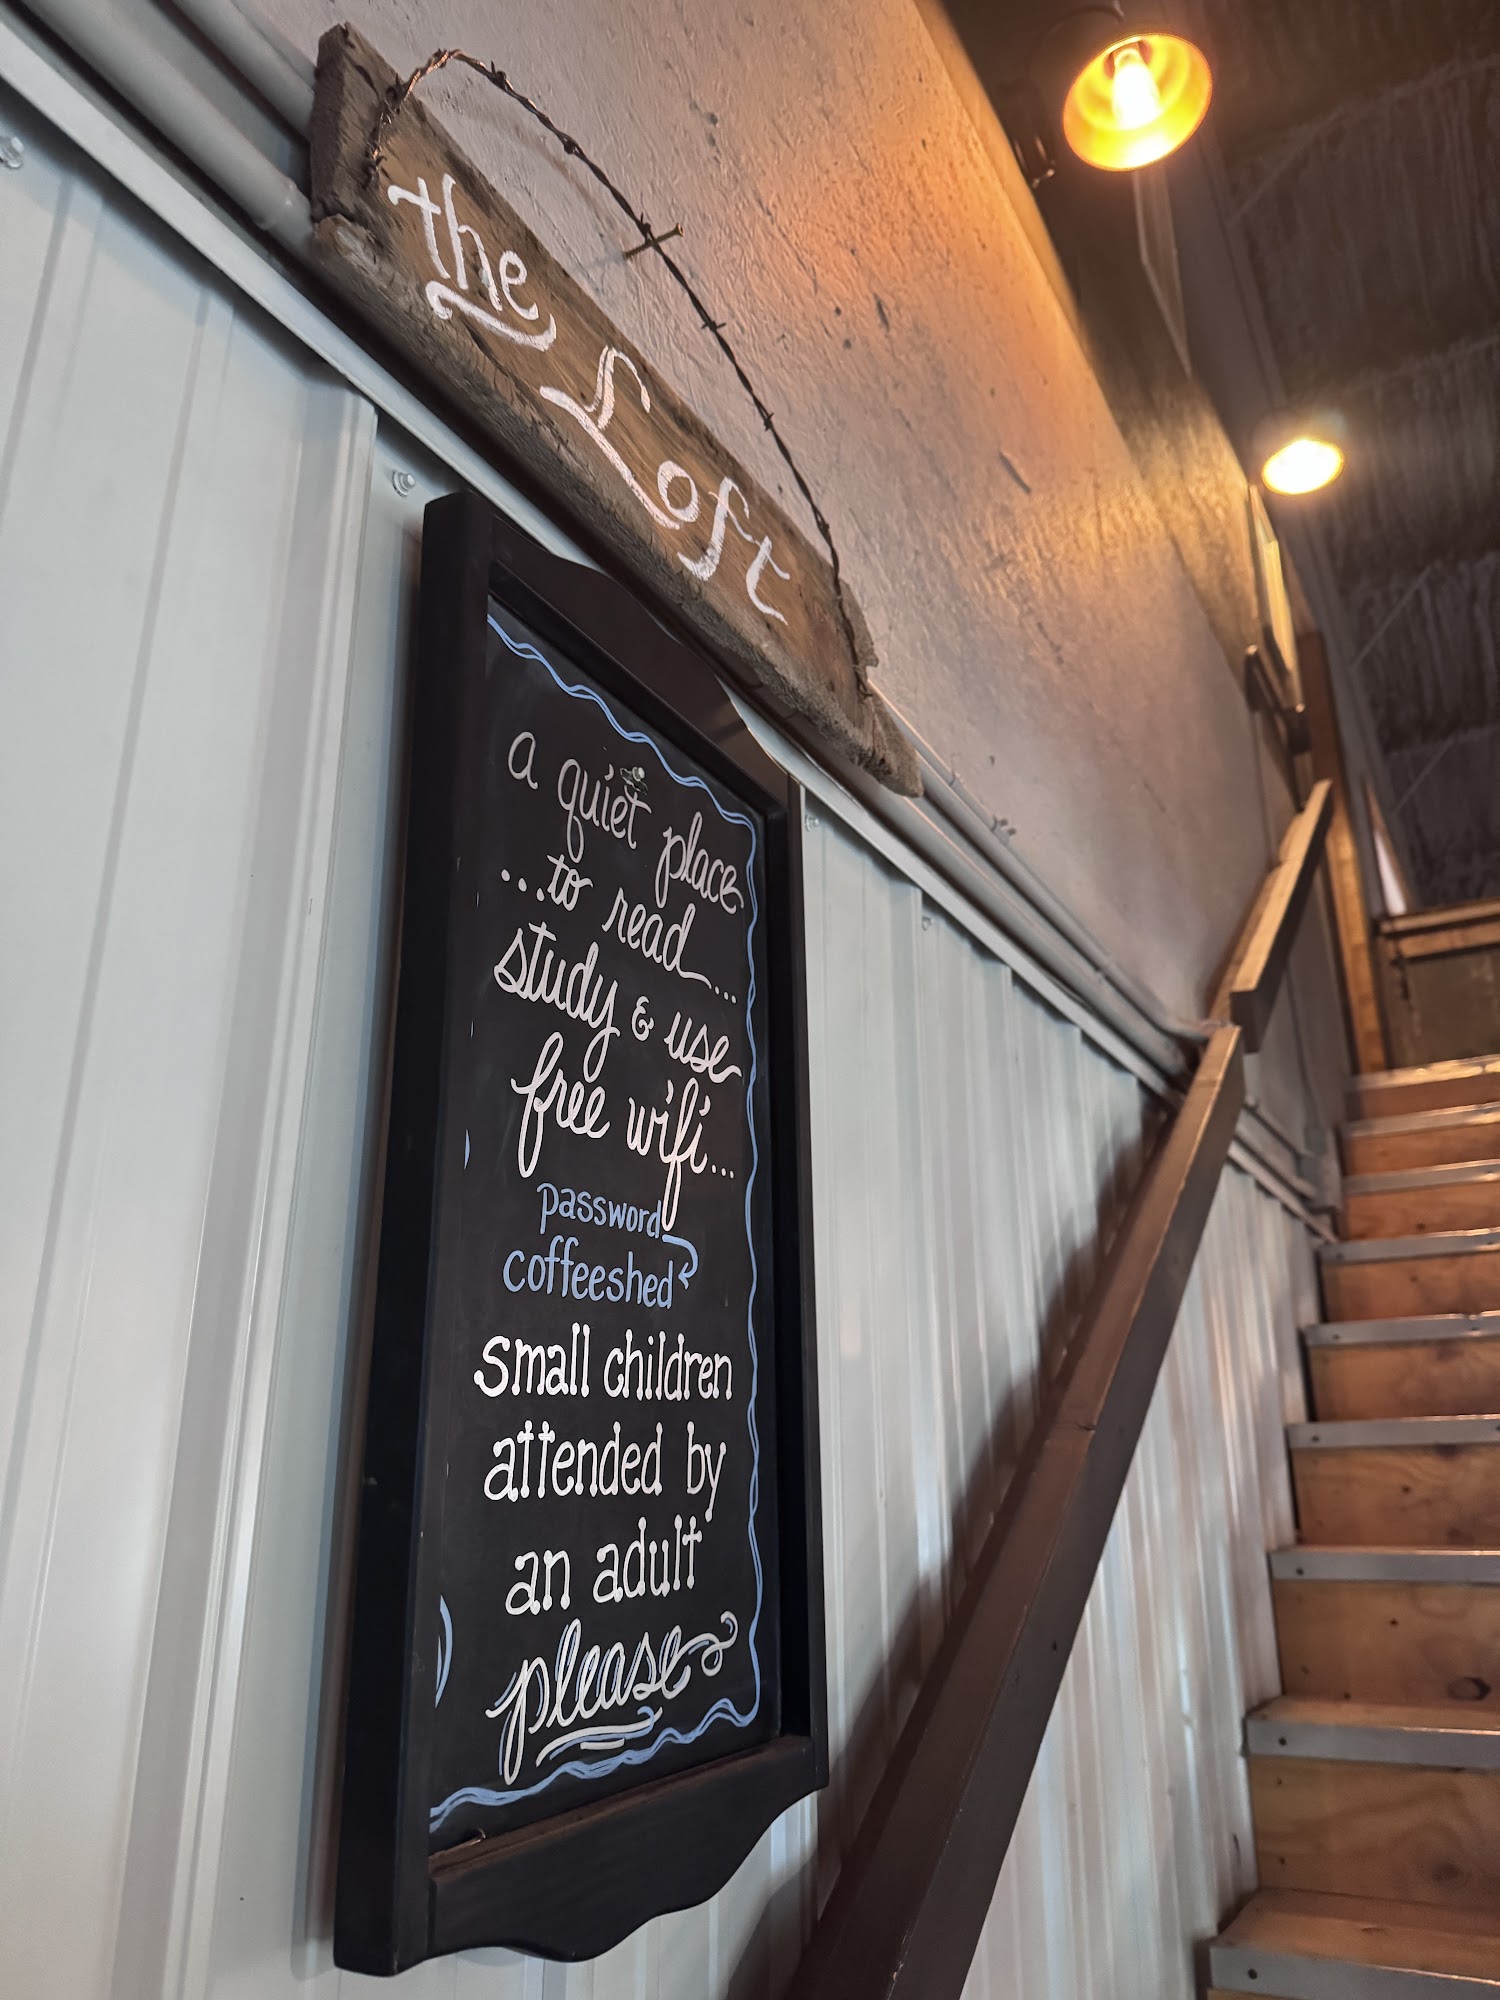 the Loft
a quiet place
...to read...
study & use
free wifi...
password
coffeeshed
small children
attended by
an adult
please